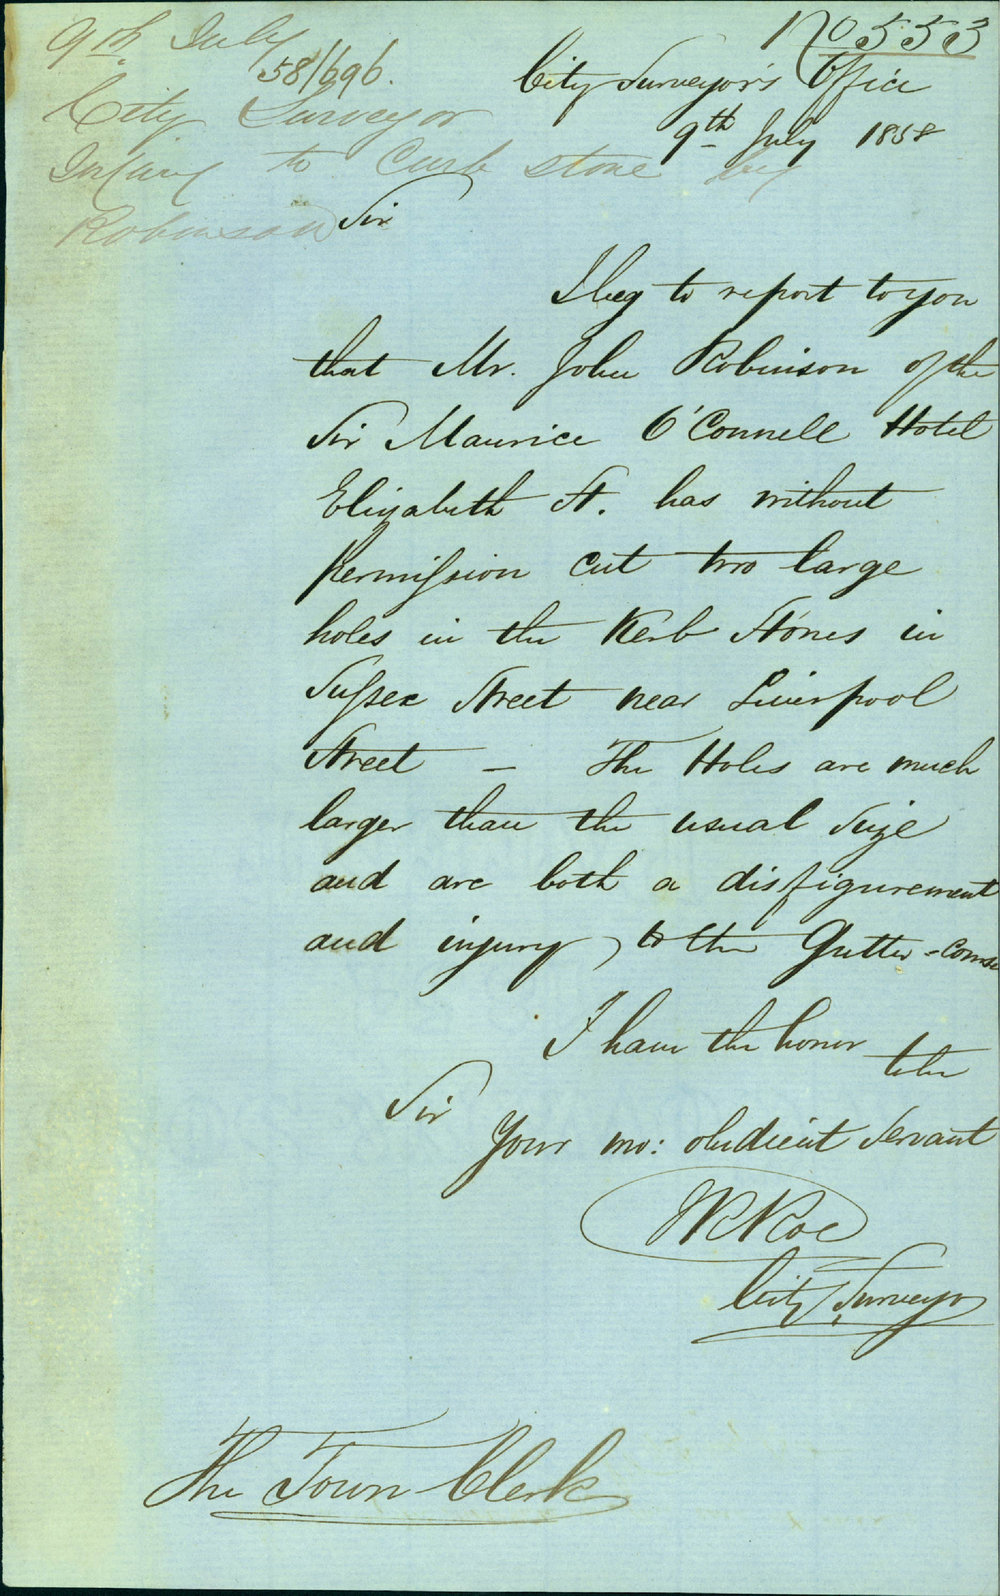 No 553
9th July
58/696.
City Surveyor
Injury to Curb stone by
Robinson
City Surveyor's Office
9th July 1858
Sir
I beg to report to you
that Mr. John Robinson of the
Sir Maurice O'Connell Hotel
Elizabeth St. has without
permission cut two large
holes in the Kerb Stones in
Sussex Street near Liverpool
Street — The Holes are much
larger than the usual size
and are both a disfigurement
and injury, to the Gutter-course
I have the honor
to be
Sir
Your mo: obedient Servant
City Surveyor
The Town Clerk